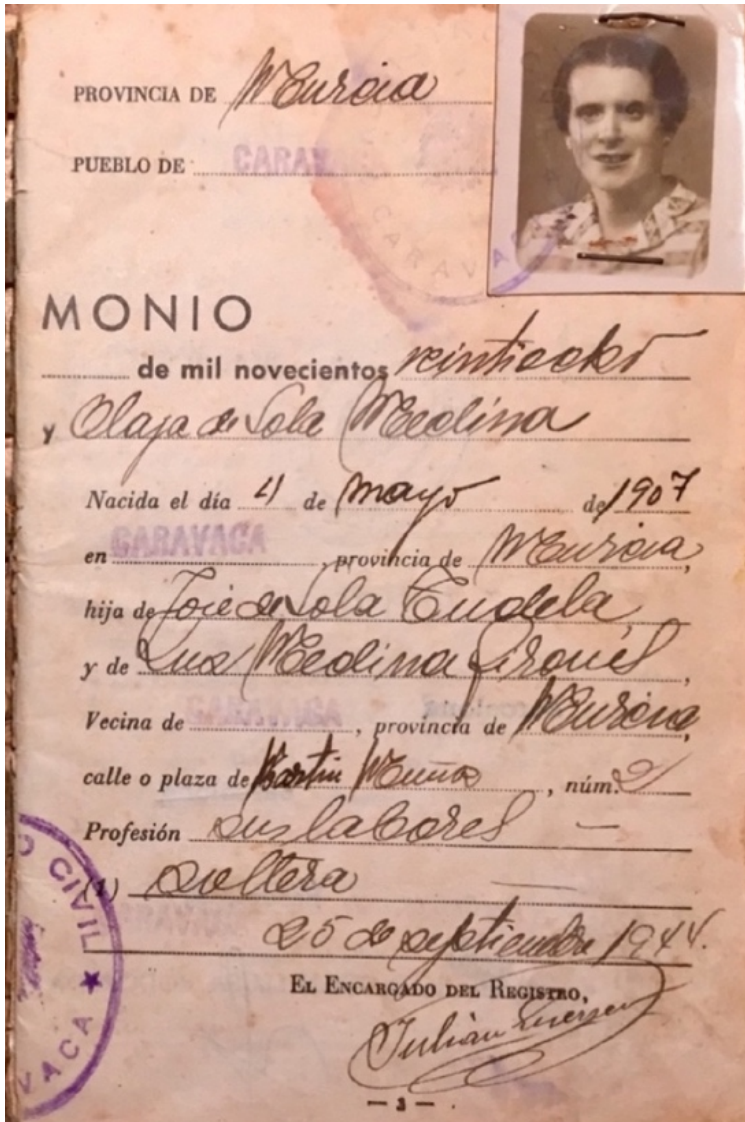 PROVINCIA DE Murcia
PUEBLO DE CARAV
CARAVA
MONIO
de mil novecientos veintiocho
y Olaja de Sola Medina
Nacida el día 4 de mayo de 1907
en CARAVACA, provincia de Murcia,
hija de José de Sola Tudela,
y de Luz Medina,
Vecina de CARAVACA, provincia de Murcia,
calle o plaza de Martin Muños, núm. 2
Profesión sus labores —
(1) soltera
25 de septiembre 1944.
EL ENCARGADO DEL REGISTRO,
Julián
O CIVIL ★
VACA
— 3 —